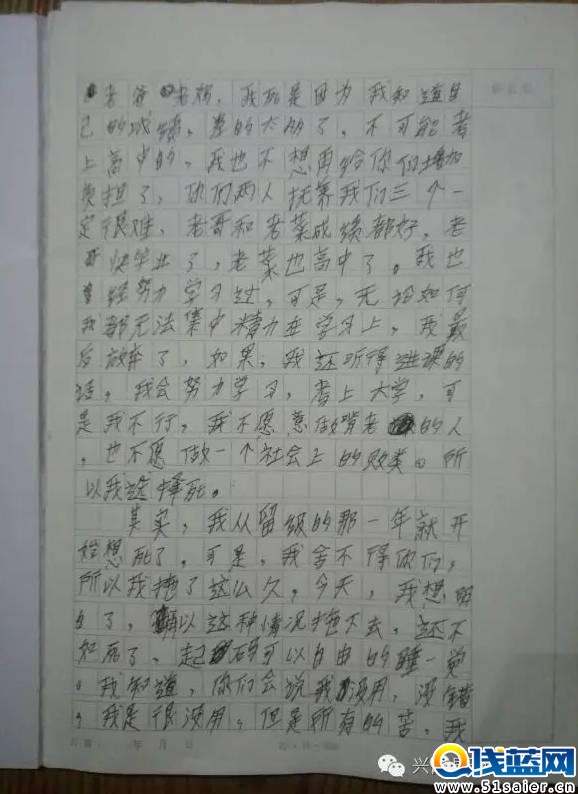 老爸老妈，我死是因为我知道自
己的成绩，差的太多了，不可能考
上高中的，我也不想再给你们增加
负担了，你们两人抚养我们三个一
定很难，老哥和老菜成绩都好，老
哥快毕业了，老菜也高中了。我也
经努力学习过，可是，无论如何
我都无法集中精力在学习上，我最
后放弃了，如果，我还听得进课的
话，我会努力学习，考上大学，可
是我不行，我不愿意做啃老的人
，也不愿做一个社会上的败类。所
以我选择死。
其实，我从留级的那一年就开
始想死了，可是，我舍不得你们，
所以我拖了这么久，今天，我想明
白了，以这种情况拖下去，还不
如死了，起码可以自由的睡一觉
。我知道，你们会说我没用，没错
，我是很没用，但是所有的苦，我
年 月 日
线蓝网
www.51saier.cn